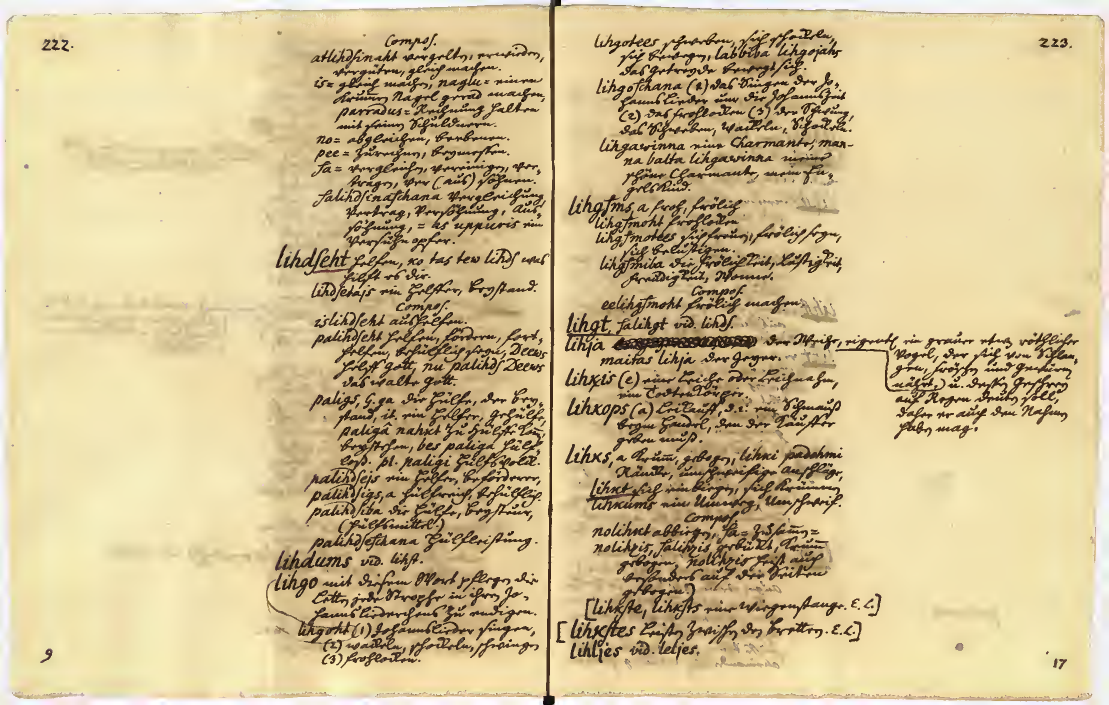 222.
Compos.
atlihdſinaht vergelten, erwiedern,
vergüten, gleich machen.
is= gleich machen, naglu= einen
krumen Nagel gerad machen,
parradus= Rechnung halten
mit seinen Schuldnern.
no= abgleichen, berbenen.
pee=
ſa= vergleichen, vereinigen, ver-
tragen, ver (aus) söhnen.
ſalihdſinaſchana Vergleichung,
Vertrag, Versöhnung, Aus-
söhnung, = as uppuris ein
Versühn opfer.
lihdſeht helfen, ko tas tew lihdſ was
hilft es dir.
lihdſetajs ein Helffer, Beystand.
Compos.
islihdſeht aushelfen.
palihdſeht helfen, fördern, fort-
helfen, behilflich seyn, Deews
helff Gott, nu palihdſ Deews
das walte Gott.
paligs, G. ga die Hülfe, der Bey-
stand, it. ein Helfer, Gehülfe
paligâ nahkt zu Hülffe
beystehen, bes paliga hülf-
los. pl. paligi Hülfsvolk.
palihdſejs ein Helfer, Beförderer,
palihdſigs, a hülfreich, behülflich
palihdſiba die Hülfe, Beysteur,
(Hülfsmittel.)
palihdſeſchana Hülfleistung.
lihdums vid. lihst.
lihgo mit diesem Wort pflegen die
Letten jede Strophe in ihren Jo-
hannisliederchens zu endigen.
lihgoht (1) Johannislieder singen,
(2) wackeln, schockeln, schwingen
(3) frohlocken.
9
223.
lihgotees schweben, sich schockeln,
sich bewegen, labbiba lihgojahs
das Getreyde bewegt sich.
lihgoſchana (1) das Singen der Jo-
hannslieder um die Johanniszeit
(2) das frohlocken (3) der Schwung,
das Schweben, Wackeln, Schockeln.
lihgawinna eine Charmante, man-
na balta lihgawinna meine
schöne Charmante, mein En-
gelskind.
lihgſms, a froh, frölich
lihgſmoht frohlocken
lihgſmotees sich freuen, frölich seyn,
sich belustigen.
lihgſmiba die Frölichkeit, Lustigkeit,
Freudigkeit, Wonne.
Compos.
eelihgſmoht frölich machen
lihgt, ſalihgt vid. lihdſ.
lihja der Weihe, eigentl. ein grauer etwas röthlicher
Vogel, der sich von Schlan-
gen, fröschen und
nährt, u. dessen Geschrey
auf Regen deuten soll,
daher er auch den Nahmen
haben mag.
maitas lihja der Geyer.
lihkis (c) eine Leiche oder Leichnahm,
ein Todtenkörper.
lihkops (a) Leikauff, d.i. ein Schmauß
beym Handel, den der Käuffer
geben muß.
lihks, a krum, gebogen, lihki padohmi
Ränke, umschweifige Anschläge,
lihkt sich einbiegen, sich krümmen
lihkums ein Umweg, Umschweif.
Compos.
nolihkt abbiegen, ſa= zusam=
nolihzis, ſalihzis gebückt krumm
gebogen, nolihzis heist auch
besonders auf die Seiten
gebogen)
[lihkſte, lihkſts eine Wiegenstange. E.L.]
[lihkſtes Leisten zwischen den bretten. E.L.]
lihljes vid. leljes.
17